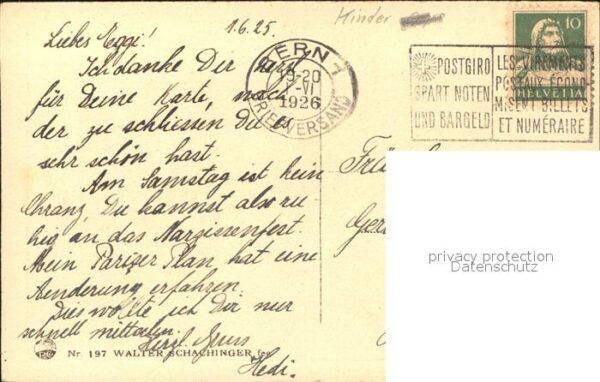 1.6.25.
Minder
Liebes Eggi!
Ich danke Dir
für Deine Karte, nach
der zu schliessen Du es
sehr schön hast.
Am Samstag ist kein
Chranz, Du kannst also ru-
hig an das Narzissenfest.
Mein Pariser Plan hat eine
Aenderung erfahren.
Dies wollte ich Dir nur
schnell mitteilen.
Herzl. Gruss
Hedi.
Nr. 197 WALTER SCHACHINGER
BERN 1
19-20
VI
1926
BRIEFVERSAND
POSTGIRO
SPART NOTEN
UND BARGELD
LES VIREMENTS
POSTAUX ÉCONO-
MISENT BILLETS
ET NUMÉRAIRE
10
HELVETIA
privacy protection
Datenschutz